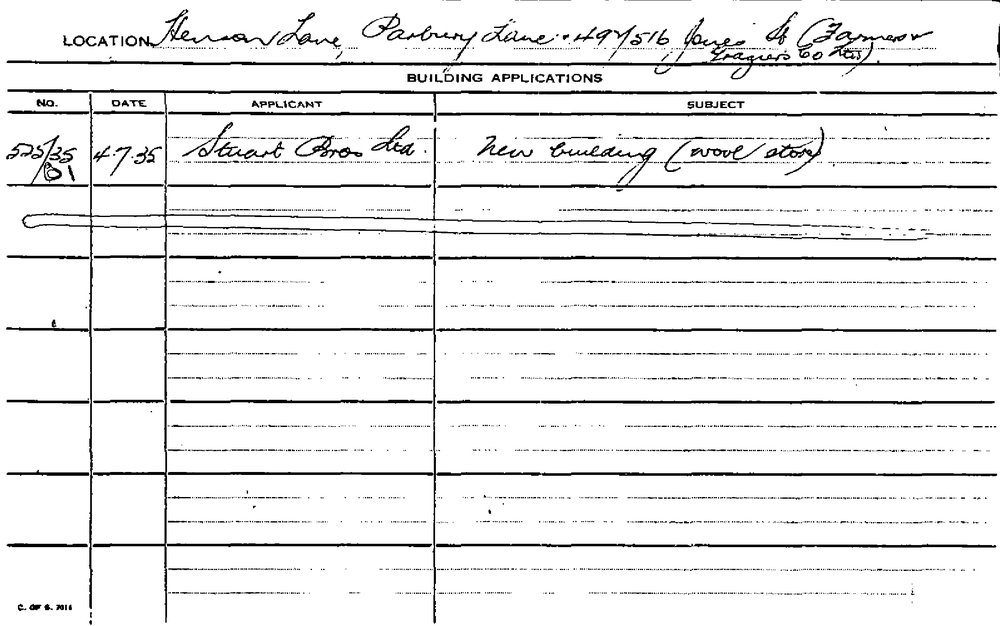 LOCATION Henson Lane, Parbury Lane & 497/516 Jones St (Farmers &
Graziers Co Ltd)
BUILDING APPLICATIONS
NO. DATE APPLICANT SUBJECT
525/35 4.7.35 Stuart Bros Ltd. New building (wool store)
C. OF S. 7016